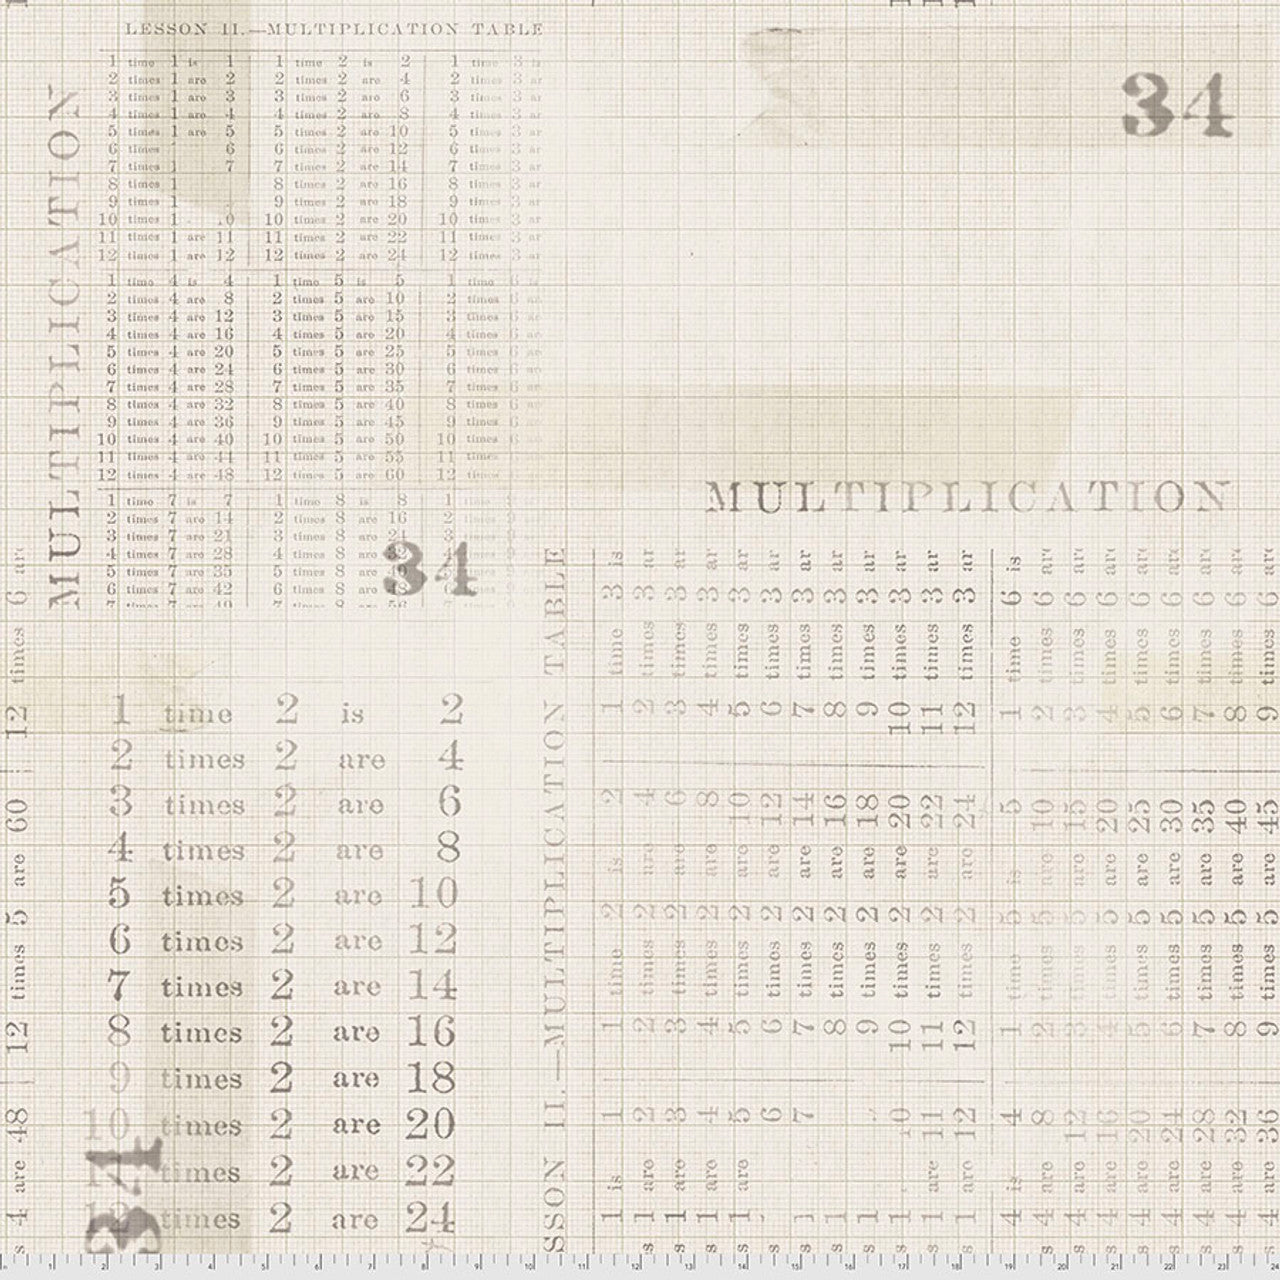 LESSON II.—MULTIPLICATION TABLE
1 time 1 is 1 1 time 2 is 2 1 time 3 is
2 times 1 are 2 2 times 2 are 4 2 times 3 ar
3 times 1 are 3 3 times 2 are 6 3 times 3 ar
4 times 1 are 4 4 times 2 are 8 4 times 3 ar
5 times 1 are 5 5 times 2 are 10 5 times 3 ar
6 times 6 6 times 2 are 12 6 times 3 ar
7 times 1 7 7 times 2 are 14 7 times 3 ar
8 times 1 8 times 2 are 16 8 times 3 ar
9 times 1 9 times 2 are 18 9 times 3 ar
10 times 1 0 10 times 2 are 20 10 times 3 ar
11 times 1 are 11 11 times 2 are 22 11 times 3 ar
12 times 1 are 12 12 times 2 are 24 12 times 3 ar
1 time 4 is 4 1 time 5 is 5 1 time 6 is
2 times 4 are 8 2 times 5 are 10 2 times 6 ar
3 times 4 are 12 3 times 5 are 15 3 times 6 ar
4 times 4 are 16 4 times 5 are 20 4 times 6 ar
5 times 4 are 20 5 times 5 are 25 5 times 6 ar
6 times 4 are 24 6 times 5 are 30 6 times 6 ar
7 times 4 are 28 7 times 5 are 35 7 times 6 ar
8 times 4 are 32 8 times 5 are 40 8 times 6 ar
9 times 4 are 36 9 times 5 are 45 9 times 6
10 times 4 are 40 10 times 5 are 50 10 times 6
11 times 4 are 44 11 times 5 are 55 11 times
12 times 4 are 48 12 times 5 are 60 12 times
1 time 7 is 7 1 time 8 is 8 1 time 9
2 times 7 are 14 2 times 8 are 16 2 times 9
3 times 7 are 21 3 times 8 are 24 3 times 9
4 times 7 are 28 4 times 8 are 32 4
5 times 7 are 35 5 times 8 are 40
6 times 7 are 42 6 times 8 are 48
7 times 7 are 49 7 times 8 are 56
MULTIPLICATION
34
34
MULTIPLICATION
1 time 2 is 2
2 times 2 are 4
3 times 2 are 6
4 times 2 are 8
5 times 2 are 10
6 times 2 are 12
7 times 2 are 14
8 times 2 are 16
9 times 2 are 18
10 times 2 are 20
11 times 2 are 22
12 times 2 are 24
34
s 4 are 48 12 times 5 are 60 12 times 6 ar
SSON II.—MULTIPLICATION TABLE
1 is 1 1 time 2 is 2 1 time 3 is
s 1 are 2 2 times 2 are 4 2 times 3 ar
s 1 are 3 3 times 2 are 6 3 times 3 ar
s 1 are 4 4 times 2 are 8 4 times 3 ar
s 1 are 5 5 times 2 are 10 5 times 3 ar
s 6 6 times 2 are 12 6 times 3 ar
s 1 7 7 times 2 are 14 7 times 3 ar
s 1 8 times 2 are 16 8 times 3 ar
s 1 9 times 2 are 18 9 times 3 ar
s 1 10 10 times 2 are 20 10 times 3 ar
s 1 are 11 11 times 2 are 22 11 times 3 ar
s 1 are 12 12 times 2 are 24 12 times 3 ar
4 is 4 1 time 5 is 5 1 time 6 is
s 4 are 8 2 times 5 are 10 2 times 6 are
s 4 are 12 3 times 5 are 15 3 times 6 are
s 4 are 16 4 times 5 are 20 4 times 6 are
s 4 are 20 5 times 5 are 25 5 times 6 are
s 4 are 24 6 times 5 are 30 6 times 6 are
s 4 are 28 7 times 5 are 35 7 times 6 are
s 4 are 32 8 times 5 are 40 8 times 6 are
s 4 are 36 9 times 5 are 45 9 times 6 are
1 2 3 4 5 6 7 8 9 10 11 12 13 14 15 16 17 18 19 20 21 22 23 24